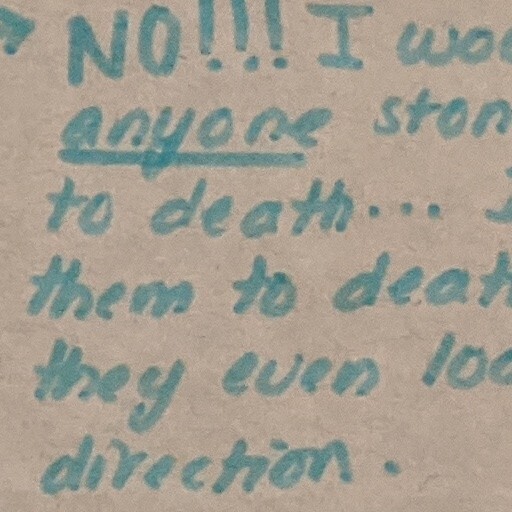 NO!!! I woo
anyone ston
to death...
them to deat
they even loo
direction.